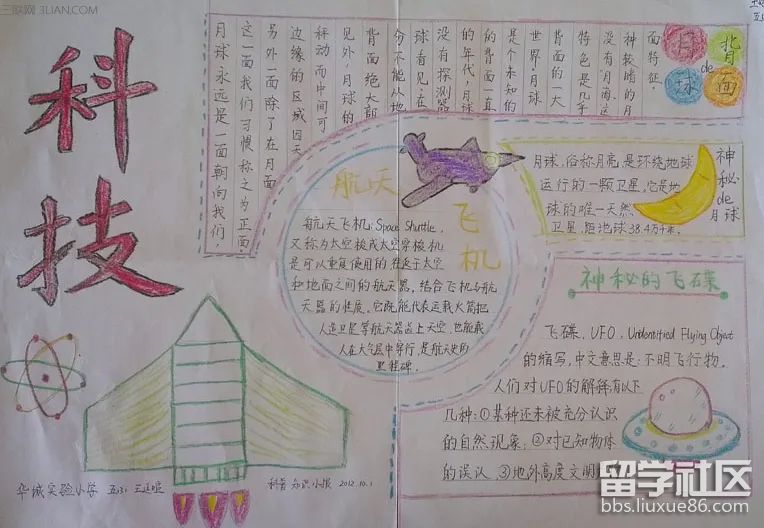 科技
月球
背面
de
月球永远是一面朝向我们,
这一面我们习惯称之为正面.
另外一面除了在月面
边缘的区域因天
秤动而中间可
见外,月球的
背面绝大部
分不能从地
球看见.在
没有探测器
的年代,月球
的背面一直
是个未知的
世界.月球
背面的一大
特色是几乎
没有月海这
种较暗的月
面特征.
航天
飞机
航天飞机:Space Shuttle,
又称为太空梭或太空穿梭机
是可以重复使用的.往返于太空
和地面之间的航天器,结合飞机与航
天器的性质。它既能代表运载火箭把
人造卫星等航天器送上天空,也能载
人在大气层中穿行,是航天史的
里程碑.
神秘de月球
月球,俗称月亮,是环绕地球
运行的一颗卫星,它是地
球的唯一天然
卫星,距地球38.4万千米.
神秘的飞碟
飞碟,UFO,Undentified Flying Object
的缩写,中文意思是:不明飞行物。
人们对UFO的解释有以下
几种:①某种还未被充分认识
的自然现象;②对已知物体
的误认,③地外高度文明
华城实验小学
科普知识小报 2012.10.1
三联网 3LIAN.COM
留学社区
bbs.liuxue86.com